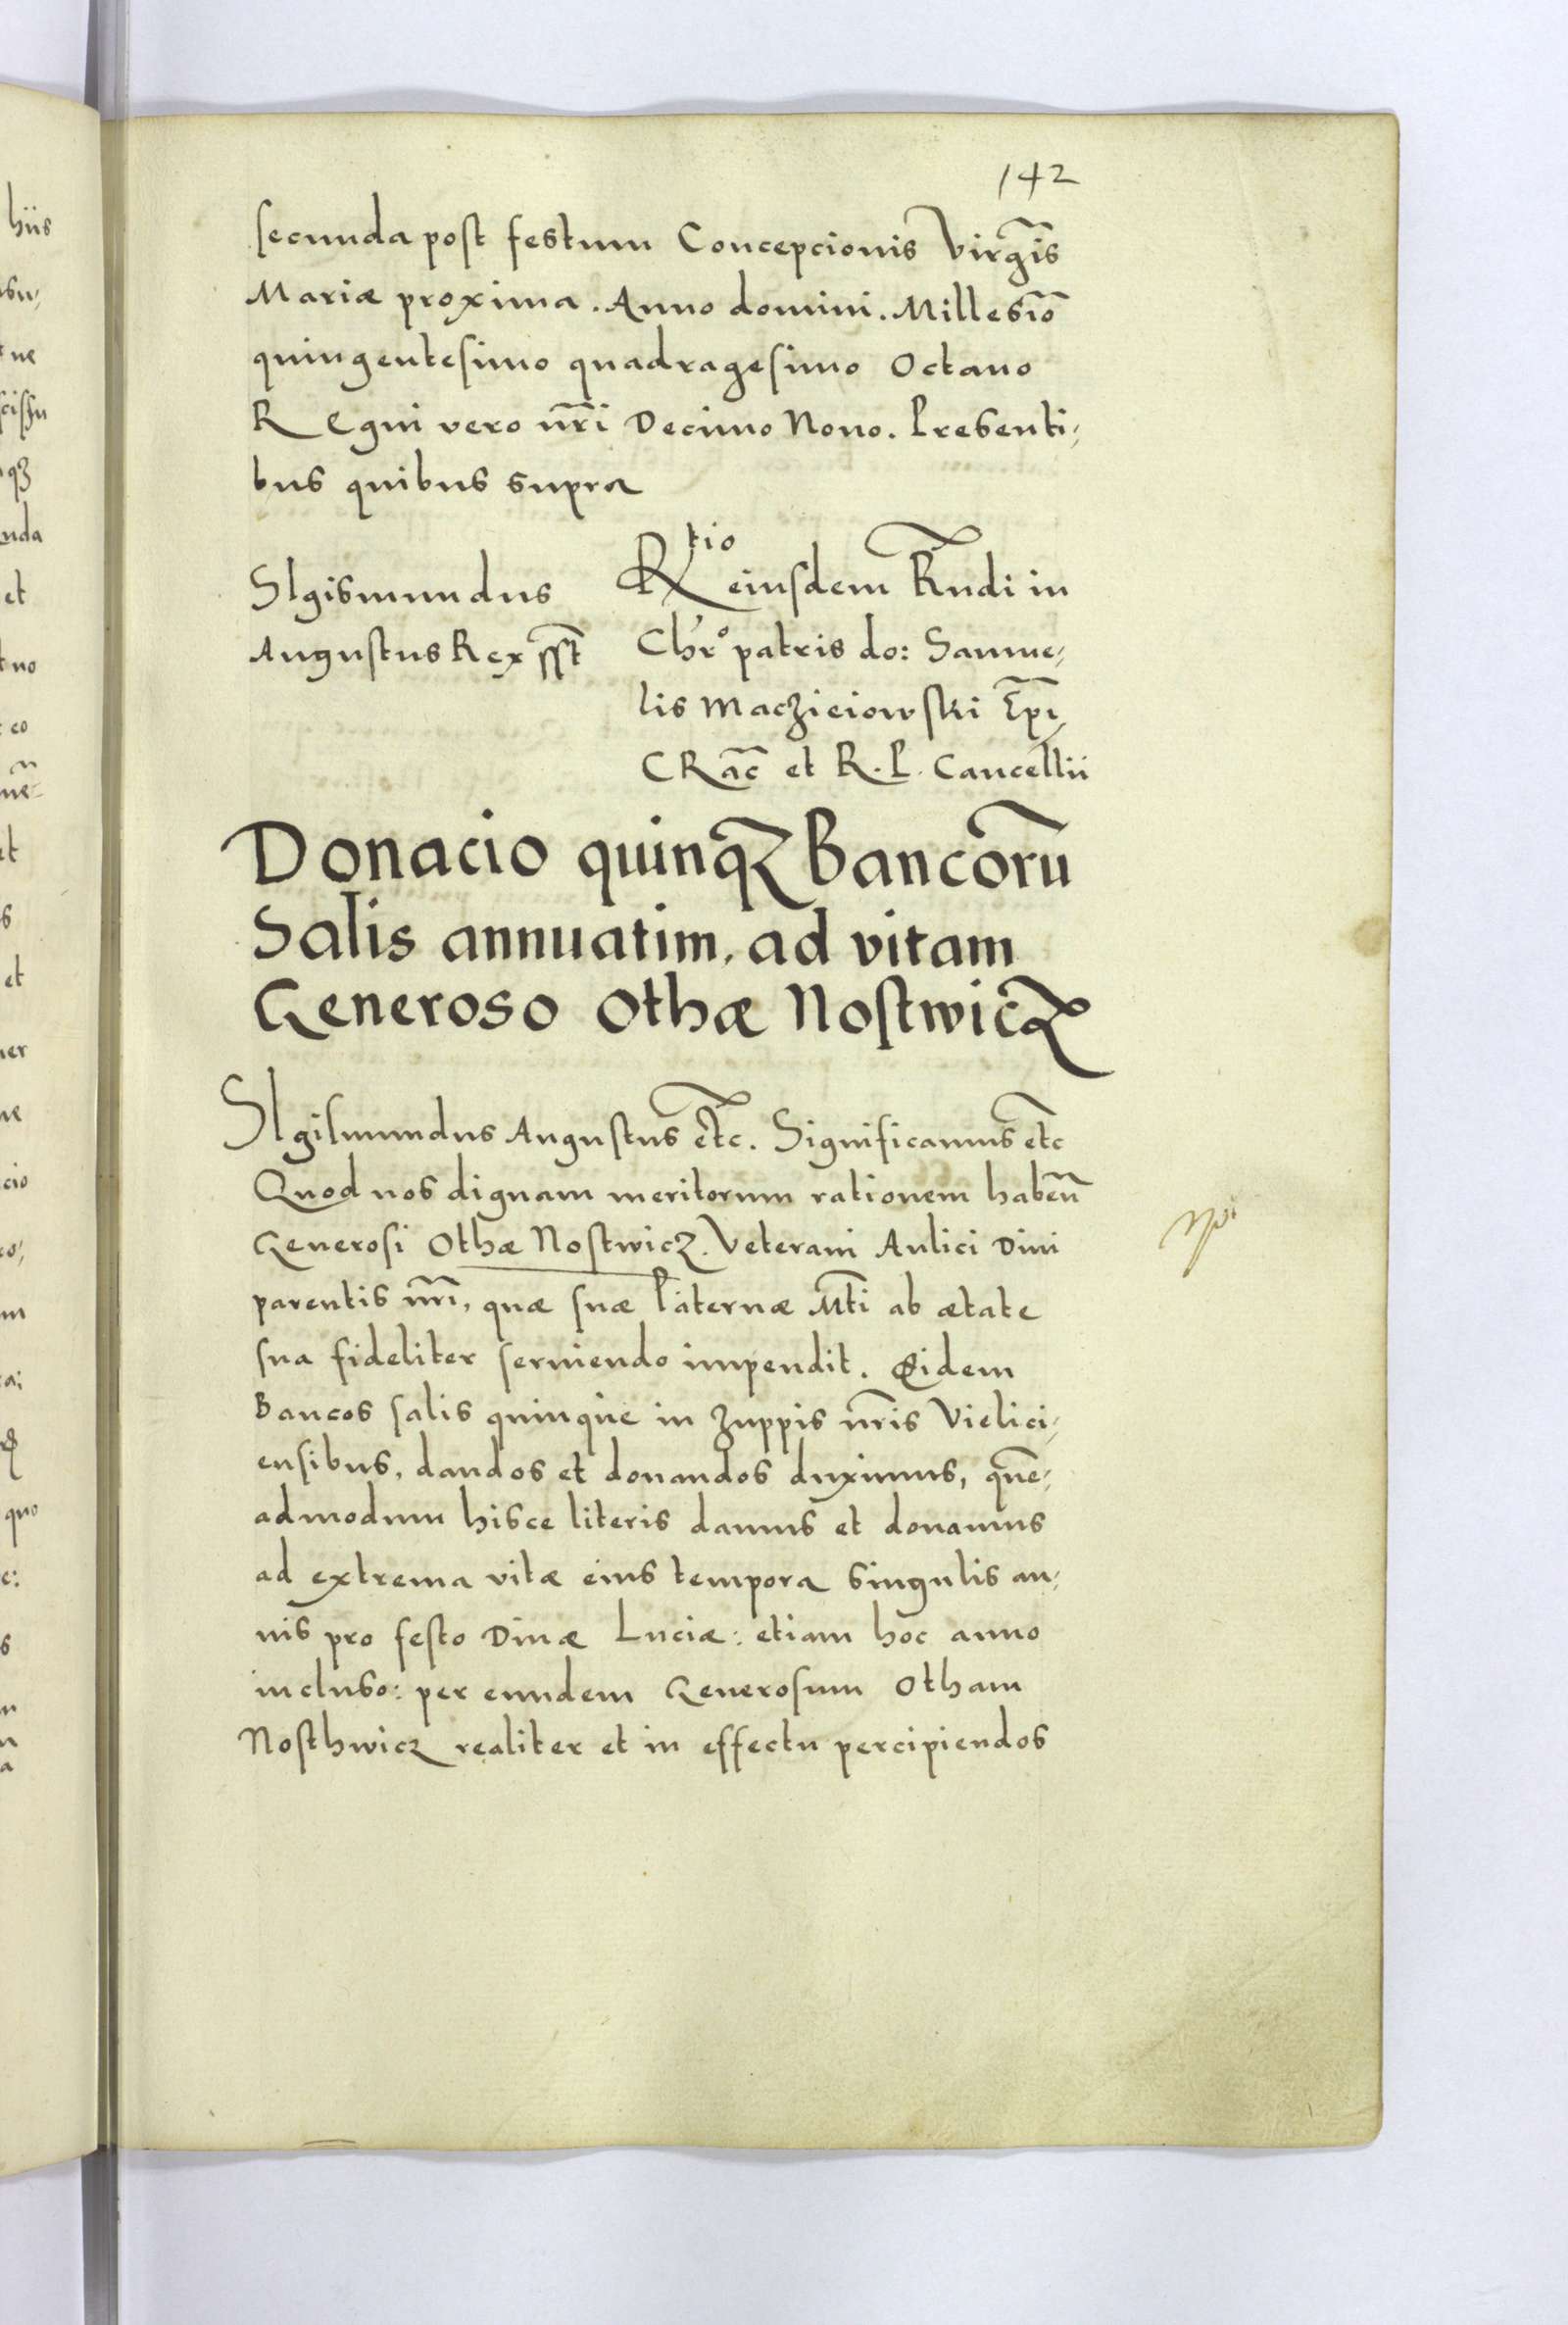 142
secunda post festum Concepcionis Virg͞is
Mariæ proxima. Anno domini. Millesi͞o
quingentesimo quadragesimo Octauo
REgni vero nr͞i Decimo Nono. Presenti,
bus quibus supra
SIgismundus
Augustus Rex sst͞
Rtio eiusdem R͞ndi in
Chr̓o patris do: Samue,
lis Maczieiowski Ep͞i
CRac͞ et R. P. Cancellii
Donacio quinqꝫ Bancoru͞
Salis annuatim, ad vitam
Generoso Othæ Nostwicꝫ
SIgismundus Augustus et͞c. Significamus et͞c
Quod nos dignam meritorum rationem habeu͞
Generosi Othæ Nostwicꝫ. Veterani Aulici Diui
parentis nr͞i, quæ suæ Paternæ Mt͞i ab ætate
sua fideliter seruiendo impendit. Eidem
Bancos salis quinque in Zuppis nr͞is Vielici,
ensibus, dandos et donandos duximus, que͞,
admodum hisce literis damus et donamus
ad extrema vitæ eius tempora singulis an,
nis pro festo Diuæ Luciæ: etiam hoc anno
incluso: per eundem Generosum Otham
Nosthwicz realiter et in effectu percipiendos